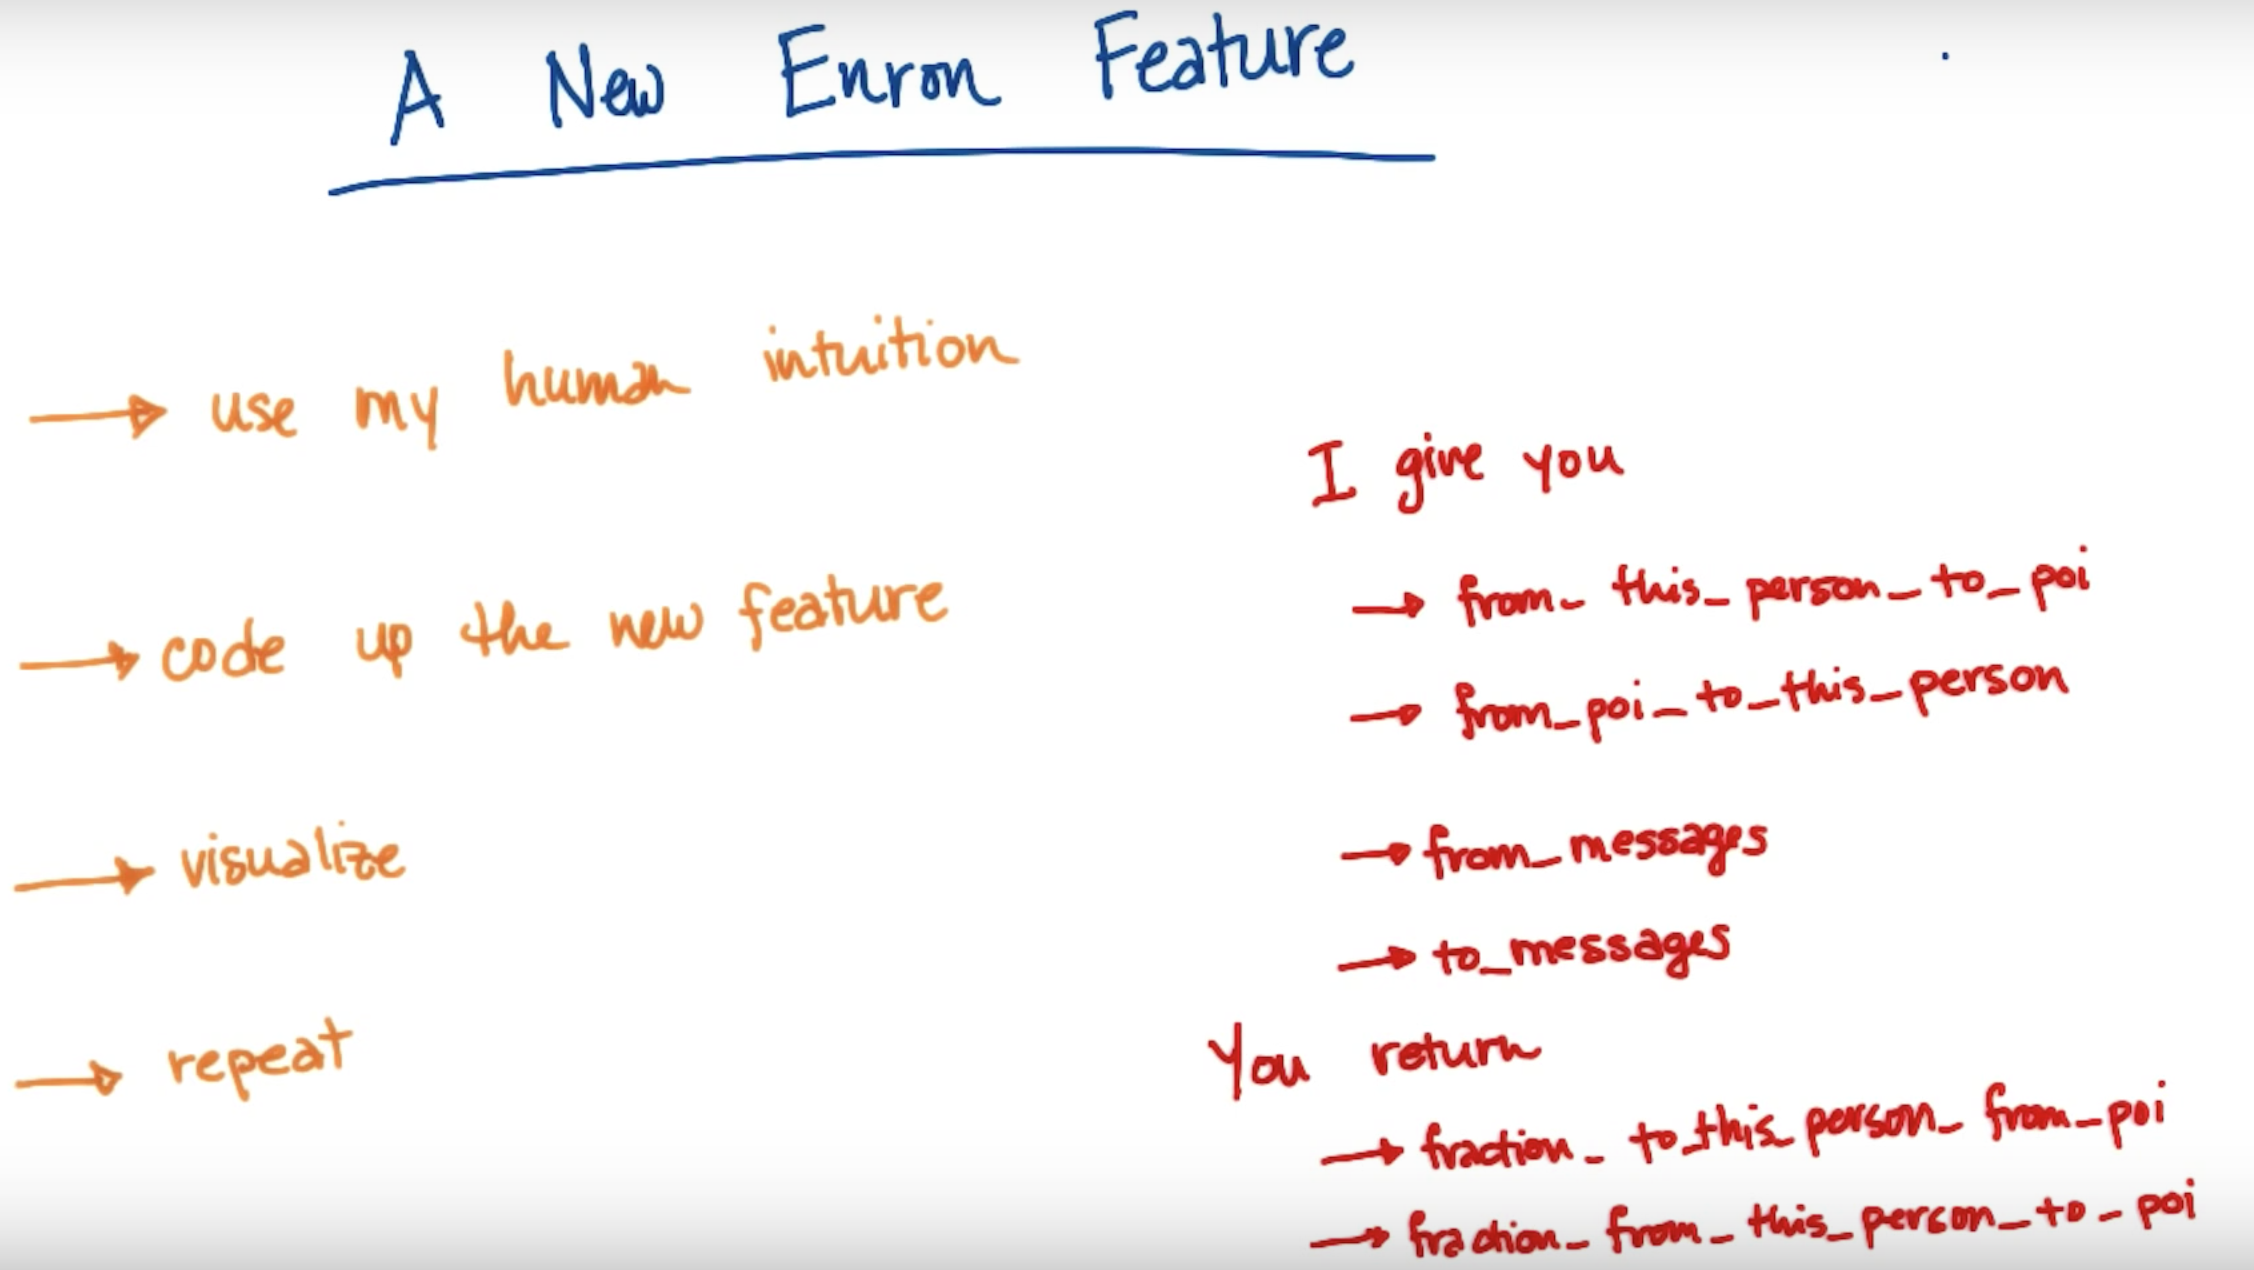 A New Enron Feature
→ use my human intuition
→ code up the new feature
→ visualize
→ repeat
I give you
→ from_this_person_to_poi
→ from_poi_to_this_person
→ from_messages
→ to_messages
You return
→ fraction_to_this_person_from_poi
→ fraction_from_this_person_to_poi